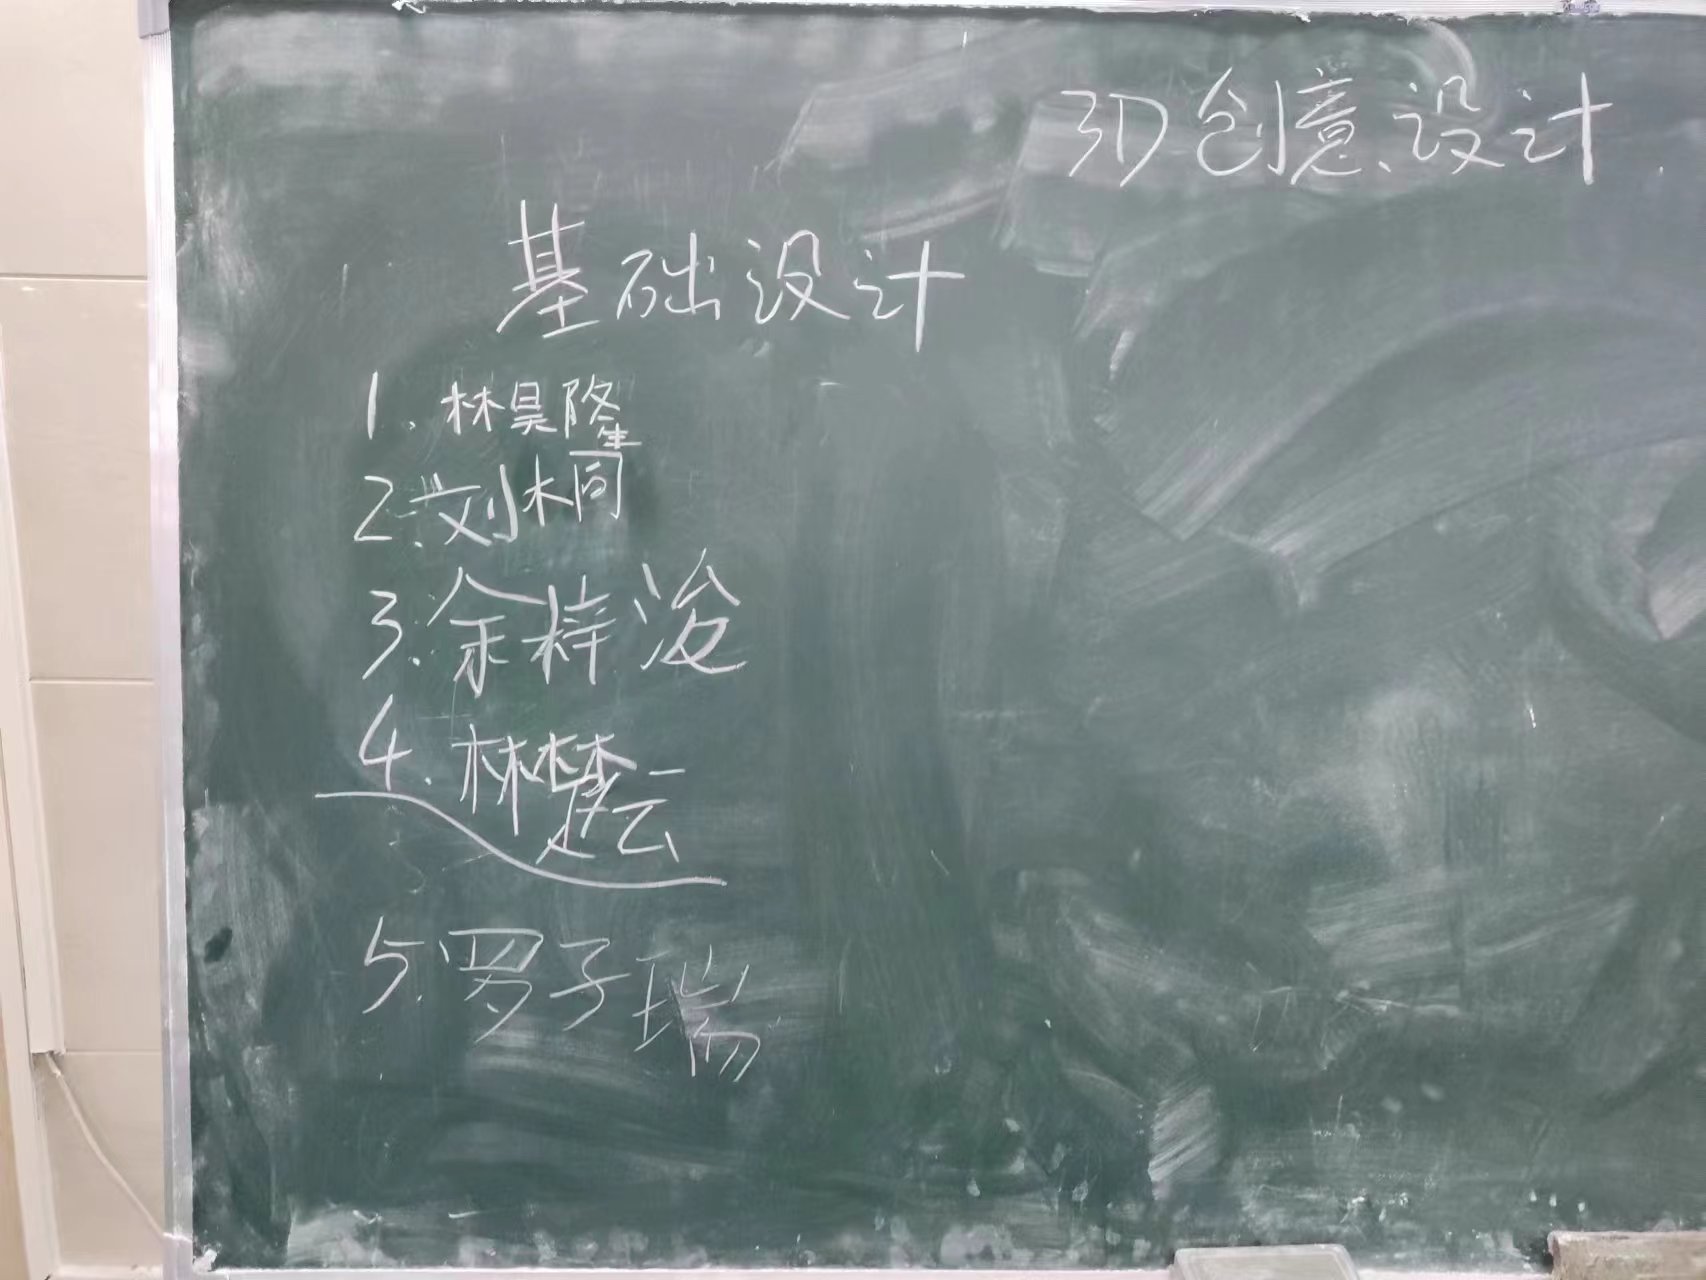 3D创意设计
基础设计
1.林昊隆
2.刘桐
3.余梓浚
4.林楚云
5.罗子瑞